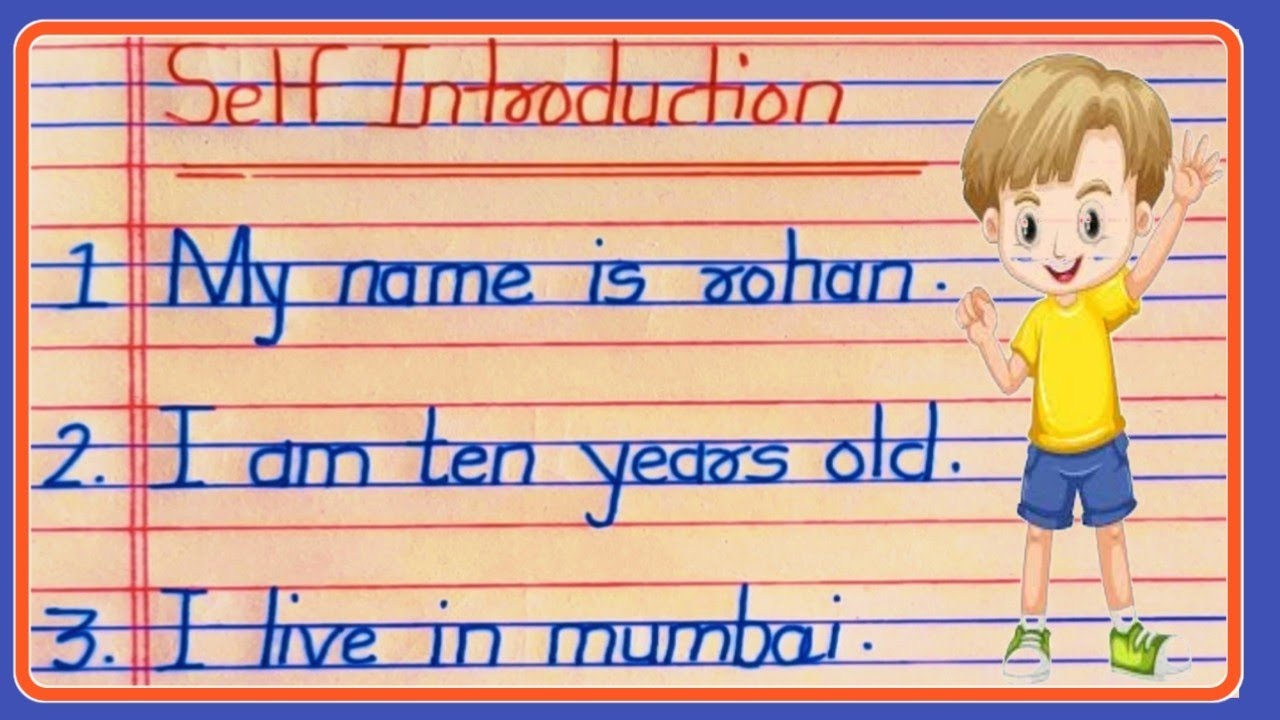 Self Introduction
1 My name is rohan.
2. I am ten years old.
3. I live in mumbai.